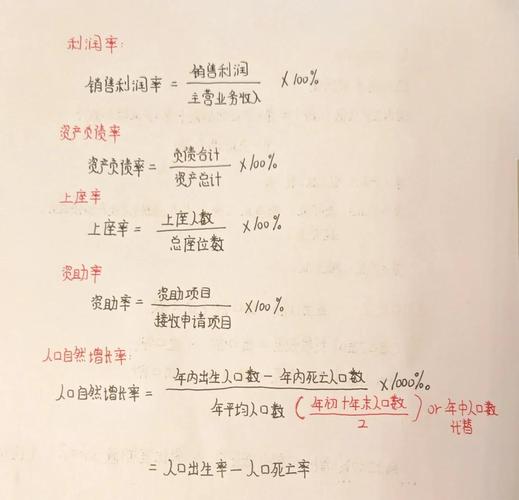 利润率:
销售利润率 = 销售利润/主营业务收入 ×100%
资产负债率
资产负债率 = 负债合计/资产总计 ×100%
上座率
上座率 = 上座人数/总座位数 ×100%
资助率
资助率 = 资助项目/接收申请项目 ×100%
人口自然增长率:
人口自然增长率 = 年内出生人口数 - 年内死亡人口数/年平均人口数 (年初+年末人口数/2) or 年中人口数代替 ×1000‰
= 人口出生率 - 人口死亡率